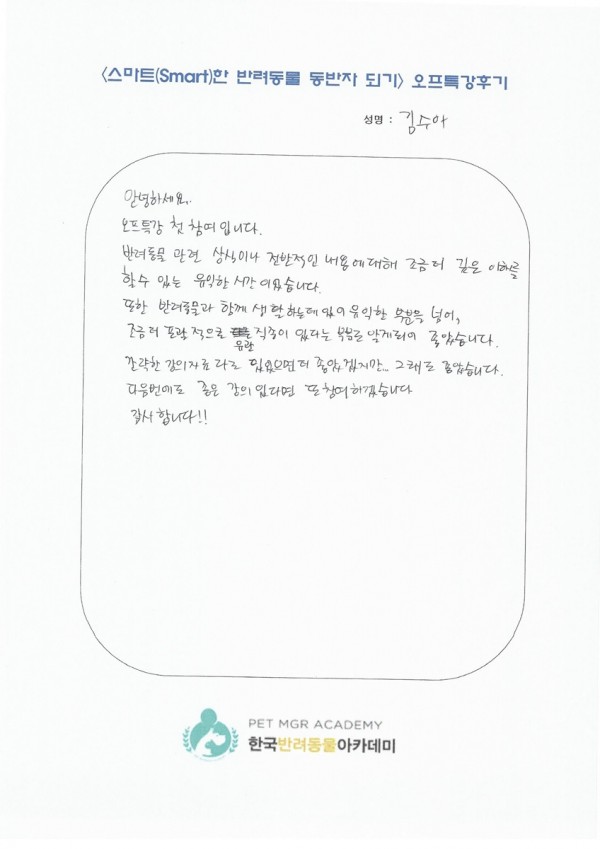 <스마트(Smart)한 반려동물 동반자 되기> 오프특강후기
성명 : 김수아
안녕하세요.
오프특강 첫 참여입니다.
반려동물 관련 상식이나 전반적인 내용에대해 조금더 깊은 이해를
할수 있는 유익한 시간이었습니다.
또한 반려동물과 함께 생활하는데있어 유익한 부분을 넘어,
조금더 포괄적으로 직종이 있다는 부분을 알게되어 좋았습니다.
유관
간략한 강의자료라도 있었으면 더 좋았겠지만... 그래도 좋았습니다.
다음번에도 좋은 강의있다면 또 참여하겠습니다
감사합니다!!
PET MGR ACADEMY
한국반려동물아카데미